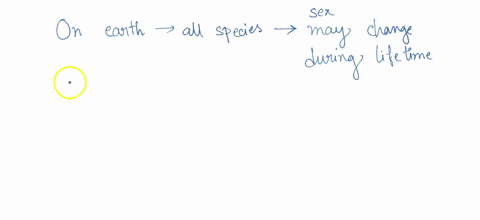 On earth → all species → sex may change
during lifetime